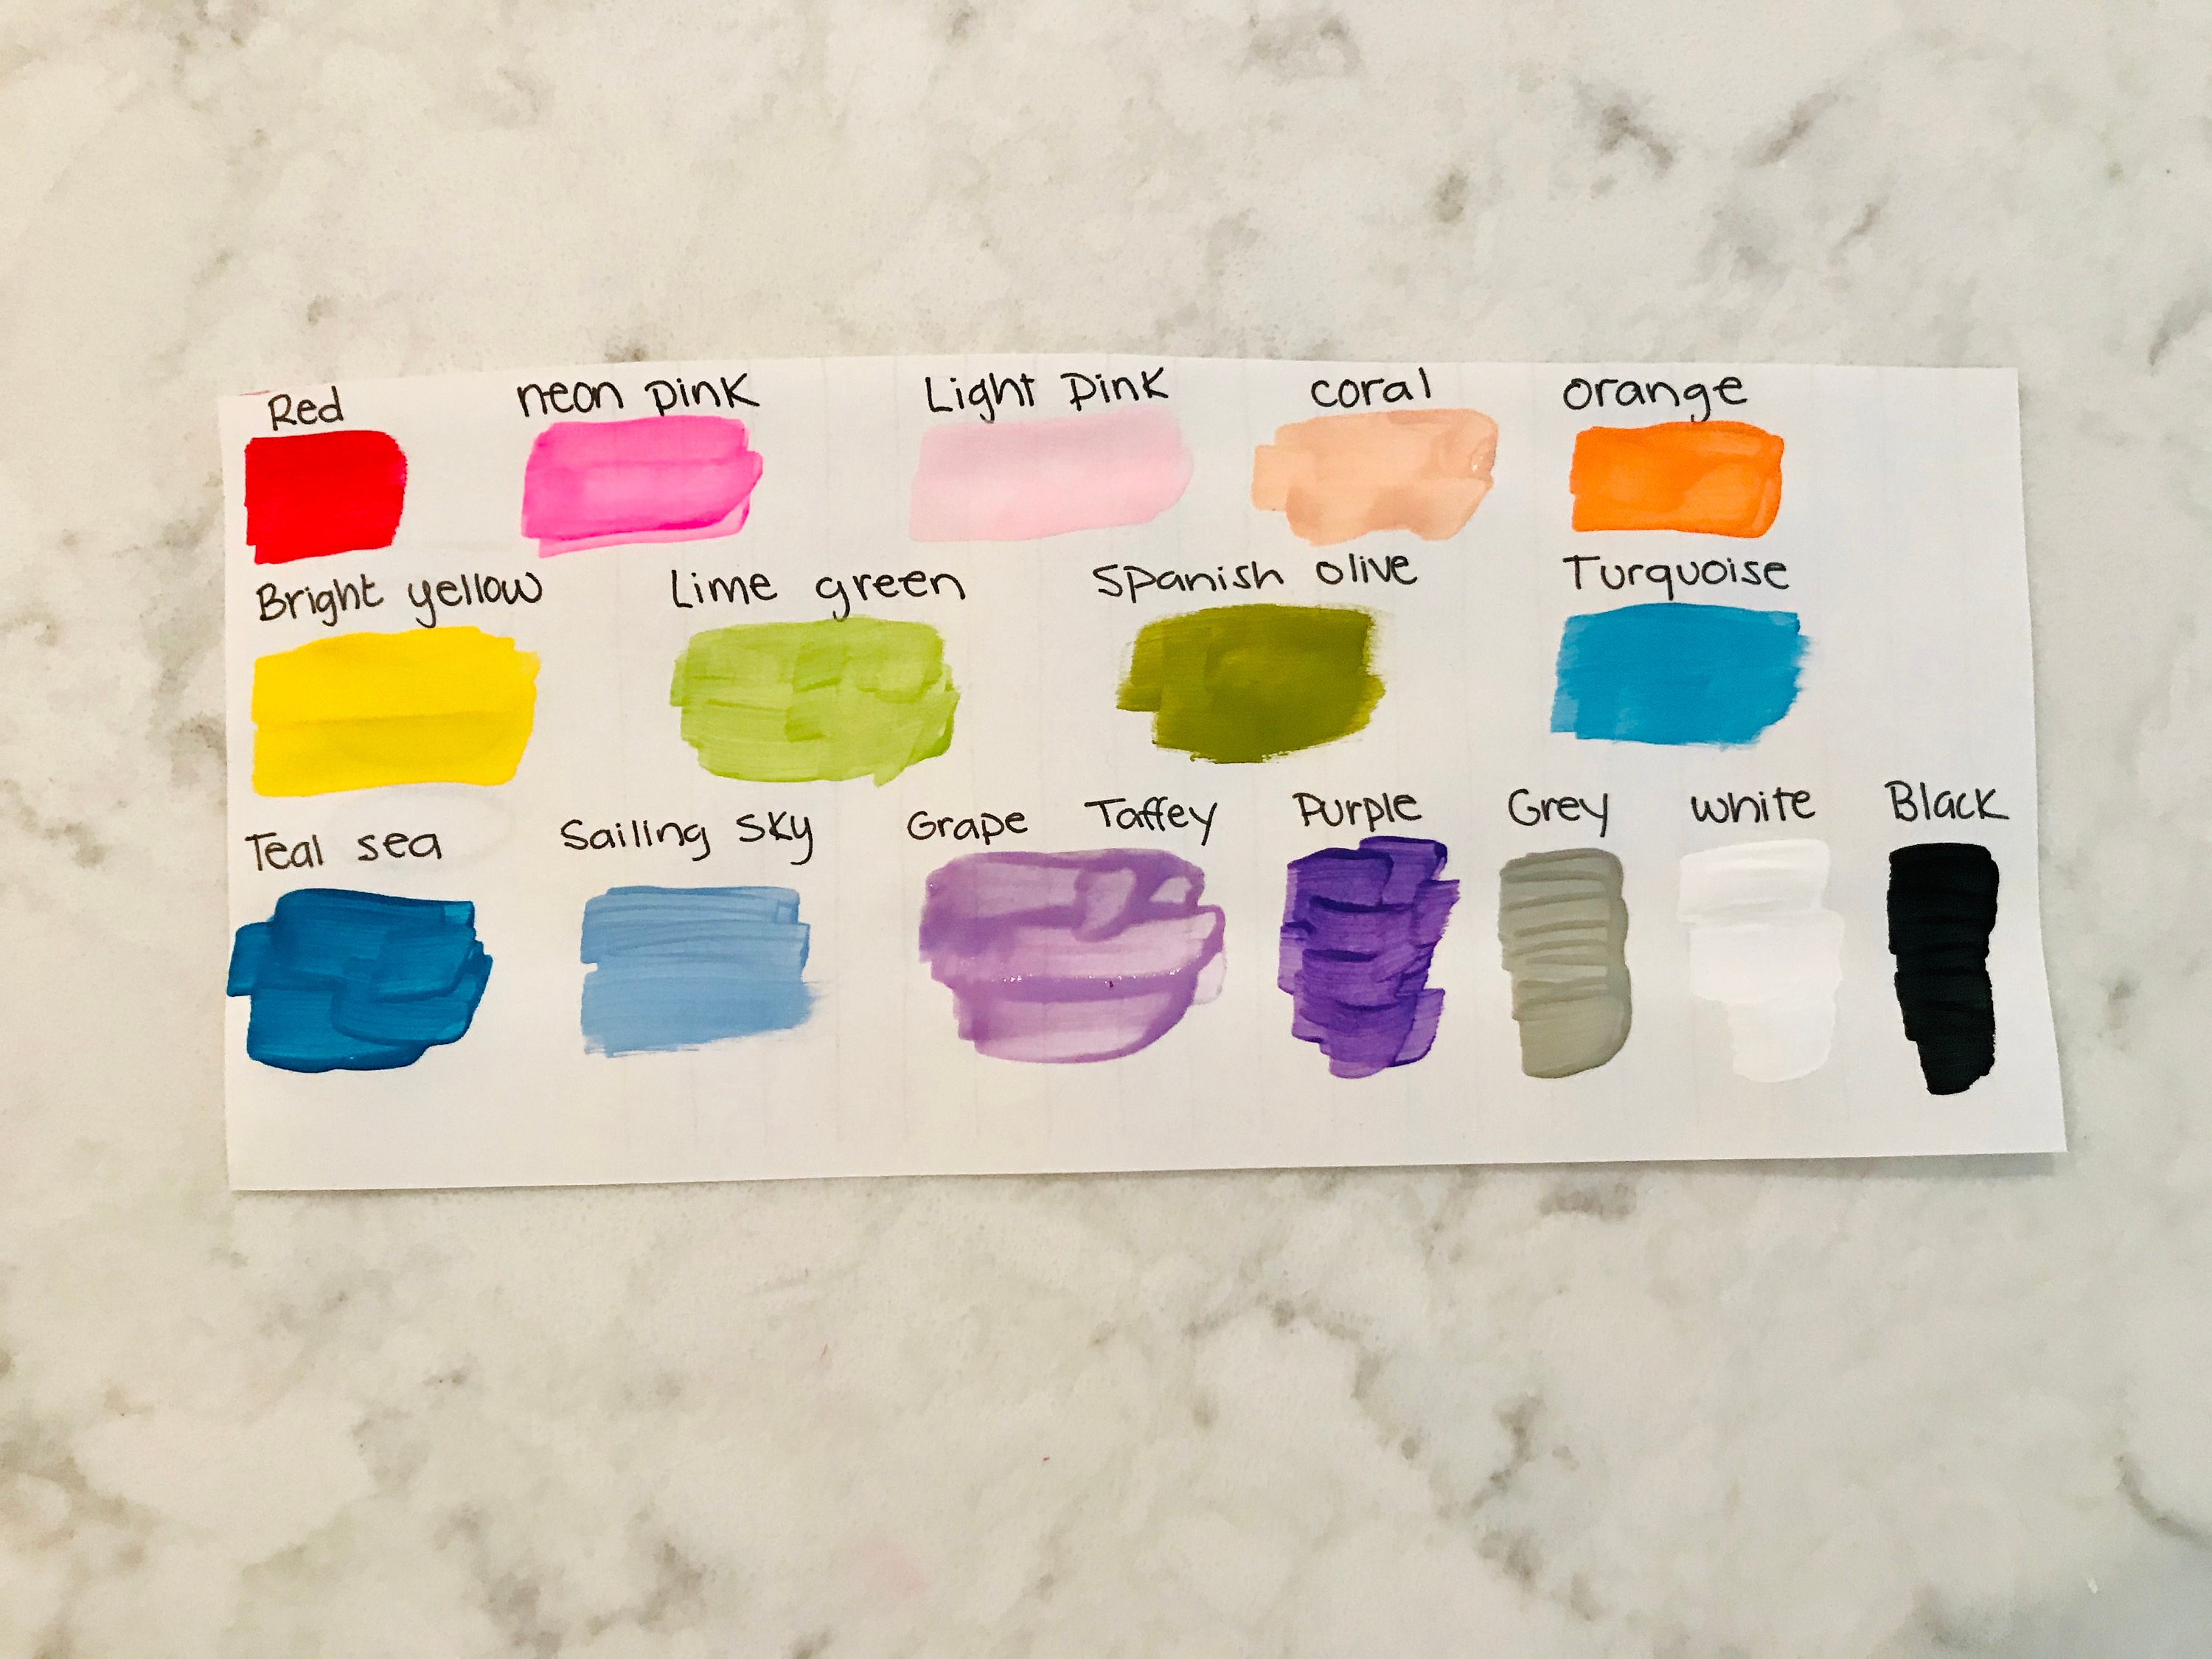 Red neon pink Light pink coral orange
Bright yellow Lime green Spanish olive Turquoise
Teal sea Sailing sky Grape Taffey Purple Grey white Black